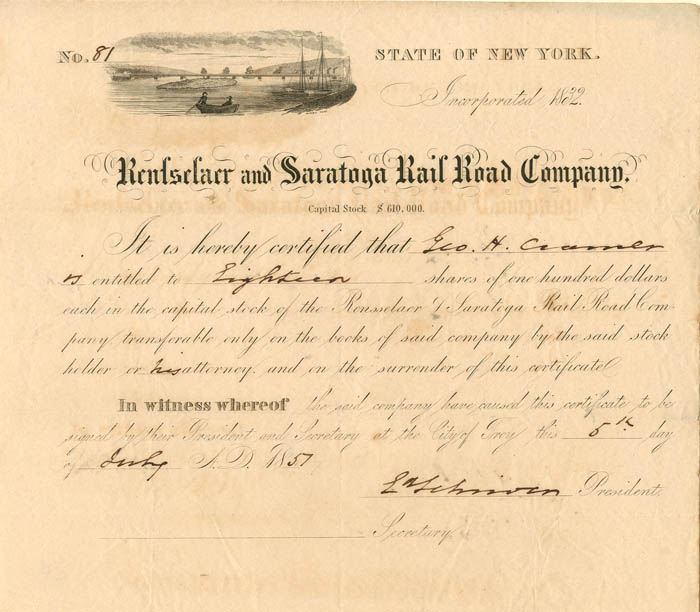 No. 81
STATE OF NEW YORK.
Incorporated 1832.
Rensselaer and Saratoga Rail Road Company.
Capital Stock $ 610,000.
It is hereby certified that Geo. H. Cramer
is entitled to Eighteen shares of one hundred dollars
each in the capital stock of the Rensselaer & Saratoga Rail Road Com-
pany transferable only on the books of said company by the said stock
holder or his attorney. and on the surrender of this certificate
In witness whereof the said company have caused this certificate to be
signed by their President and Secretary at the City of Troy this 5th day
of July A.D. 1851
President.
Secretary.